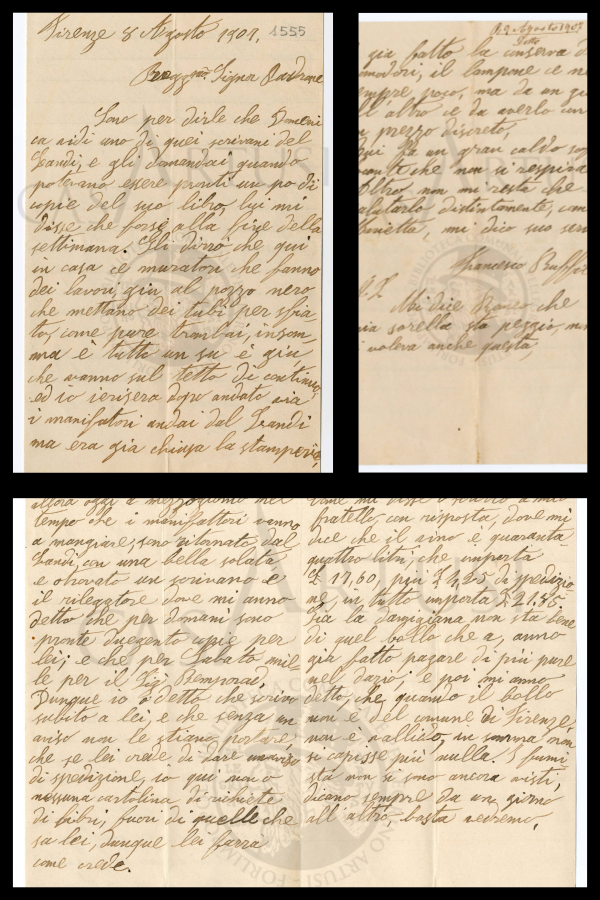 Firenze 8 Agosto 1901. 1555
Signor Padrone
Sono per dirle che Domeni
ca vidi uno di quei scrivani del
Landi, e gli domandai quando
potevano essere pronti un po di
copie del suo libro, lui mi
disse che forse alla fine della
settimana. Gli dirrò che qui
in casa ce muratori che fanno
dei lavori, giu al pozzo nero
che mettano dei tubi per sfia
to, come pure trombai, insom,
ma è tutto un su e giu
che vanno sul tetto di continuo,
ed io ierisera dopo andato via
i manifatori andai dal Landi
ma era gia chiusa la stamperia,
allora oggi a mezzogiorno nel
tempo che i manifattori vanno
a mangiare, sono ritornato dal
Landi, con una bella solata,
e o trovato un scrivano e
il rilegatore dove mi anno
detto che per domani sono
pronte duegento copie per
lei; e che per Sabato mil=
le per il Sig. Bemporad,
Dunque io o detto che scrivo
subito a lei, e che senza un
aviso non le stiano portare,
che se lei crede di dare
di spedizione, io qui non o
nessuna cartolina di richieste
di libri, fuori di quelle che
sa lei, dunque lei farrà
come crede.
mi disse o scritto a mio
fratello, con risposta, dove mi
dice che il vino è quaranta=
quattro litri, che importa
£ 17,60, più £ 4,25 di spedizio
ne, in tutto importa £ 21,85.
Sia la damigiana non sta bene
di quel bollo che a, anno
gia fatto pagare di più pure
nel dazio, e poi mi anno
detto, che quando il bollo
non è del comune di Firenze,
non è vallido, in somma non
si capisse più nulla. I fumi
sta non si sono ancora visti,
dicano sempre da un giorno
all'altro, basta vedremo,
8 Agosto 1901
gia fatto la conserva di
omodori, il lampone ce n
empre poco, ma da un gi
all'altro ce da averlo con
n prezzo discreto,
qui fa un gran caldo sof
cante che non si respira
Altro non mi resta che
salutarlo distintamente, com
Marietta, mi dico suo serv
Francesco Ruffil
Mi dice che
mia sorella sta peggio, m
ci voleva anche questa